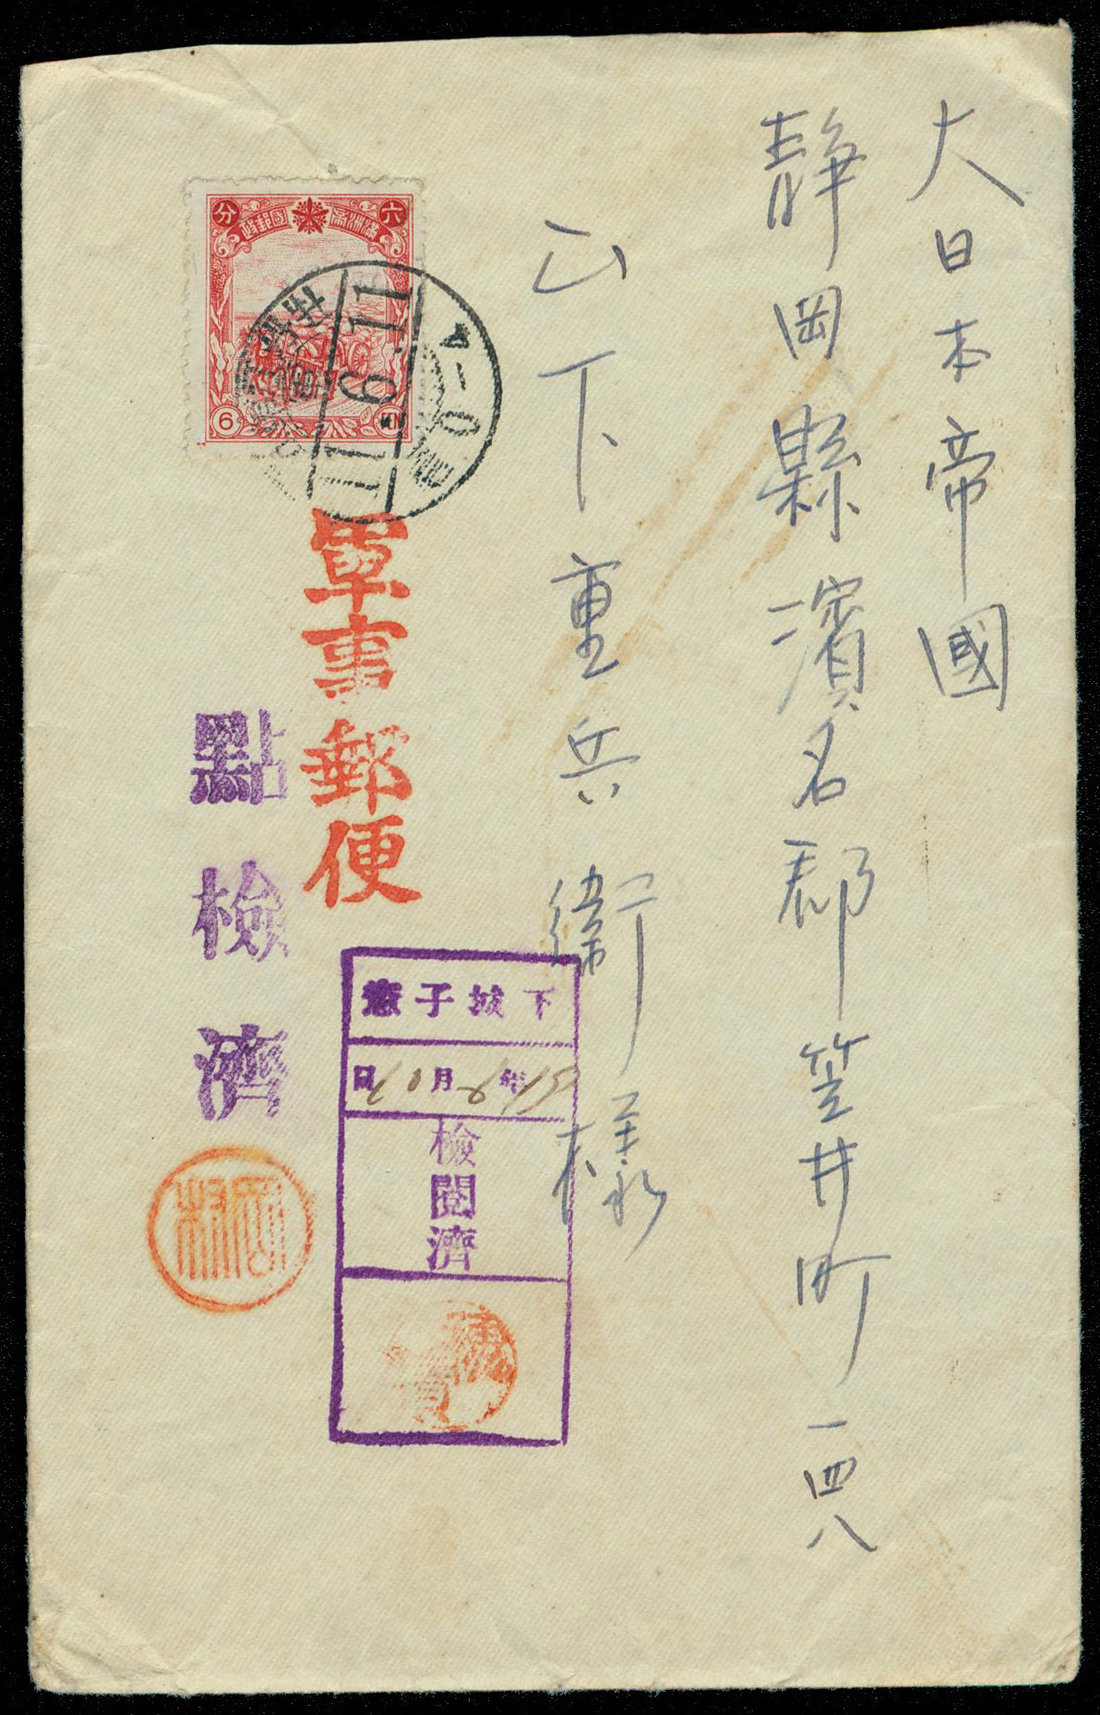 大日本帝國
静岡縣濱名郡笠井町一四八
山下重兵衛様
六 分
滿洲帝國郵政
6
11.6.11
軍事郵便
點檢濟
下城子憲
年 月 日
檢閲濟
岡村